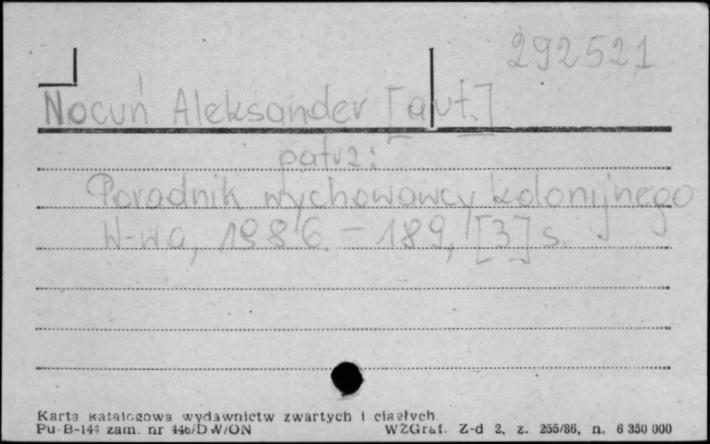 292521
Nocuń Aleksander [aut.]
patrz:
Poradnik wychowawcy kolonijnego
W-wa, 1986. – 189, [3] s.
Karta katalogowa wydawnictw zwartych i ciągłych.
Pu-B-144 zam. nr 446/DW/ON WZGraf. Z-d 2, z. 255/86, n. 6 350 000